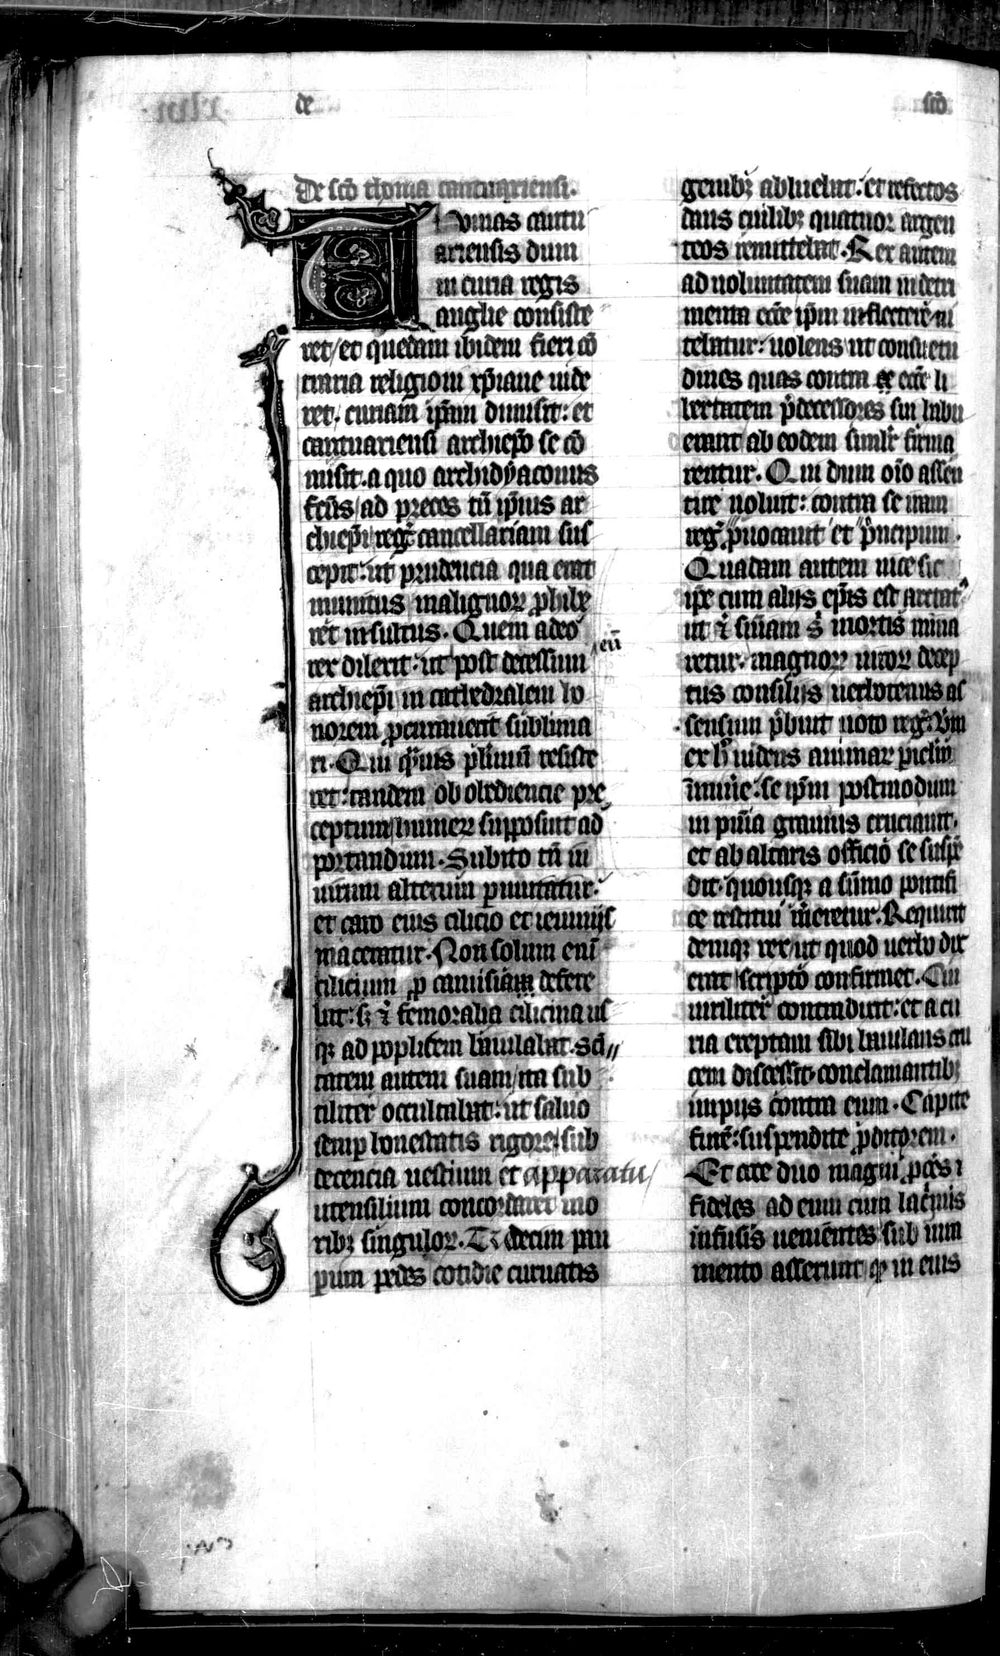 de
sc̄o
De sc̄o thoma cantuariensi.
Thomas cantu
ariensis dum
in curia regis
anglie consiste
ret/et quedam ibidem fieri cō
traria religioni xp̄iane uide
ret. curiam ip̄am dimisit: et
cantuariensi archiep̄o se cō
misit. a quo archidyaconus
fc̄us/ad preces tn̄ ip̄ius ar
chiep̄i regꝭ cancellariam sus
cepit: ut prudencia qua erat
munitus malignoꝝ ꝓhibe
ret insultus. Quem adeo
rex dilexit: ut post decessum eū
archiep̄i in cathedralem ho
norem ꝓcurauerit sublima
ri. Qui qͣuis pl̓imū resiste
ret: tandem ob obediencie pre
ceptum humeꝝ supposuit ad
portandum. Subito tn̄ in
uirum alterum ꝑmutatur:
et caro eius cilicio et ieiunijs
maceratur. Non solum enī
cilicium ꝓ camisiam defere
bat: sꝫ ⁊ femoralia cilicina us
qꝫ ad poplitem baiulabat. Sāc
titatem autem suam/ita sub
tiliter occultabat: ut saluo
semꝑ honestatis rigore/sub
decencia uestium et apparatu
utensilium concordaret mo
ribꝫ singuloꝝ. Tredecim pau
perum pedes cotidie curuatis
genibꝫ abluebat: et refectos
dans cuilibꝫ quatuor argen
teos remittebat. Rex autem
ad uoluntatem suam in detri
menta ecc̄e ip̄m inflectere ni
tebatur: uolens ut consuetu
dines quas contra ecc̄e li
bertatem p̓decessores sui habu
erant ab eodem simil̓r firma
rentur. Qui dum oīo assen
tire noluit: contra se iram
regꝭ ꝓuocauit et p̓ncipum.
Quadam autem uice sic
ip̄e cum alijs ep̄is est artatꝰ
ut ⁊ sn̄iam sꝭ mortis mina
retur. magnoꝝ uiroꝝ decep
tus consilijs uerbotenus as
sensum p̓buit uoto regꝭ. Vm̄
ex hͦ uidens animaꝝ ꝑiclm̄
īminē. se ip̄m postmodum
in pn̄ia grauius cruciauit.
et ab altaris officio se suspē
dit. quousqꝫ a sūmo pontifi
ce restitui m̄eretur. Requirit
deniqꝫ rex/ut quod uerbo dix
erat scripto confirmet. Cui
uiriliter contradicit: et a cu
ria ereptam sibi baiulans cru
cem discessit. conclamantibꝫ
impijs contra eum. Capite
furē: suspendite ꝓditorem.
Et ecce duo magni ꝓc̄es ⁊
fideles ad eum cum lac̓mis
infusis uenientes sub iura
mento asserunt qꝫ in eius